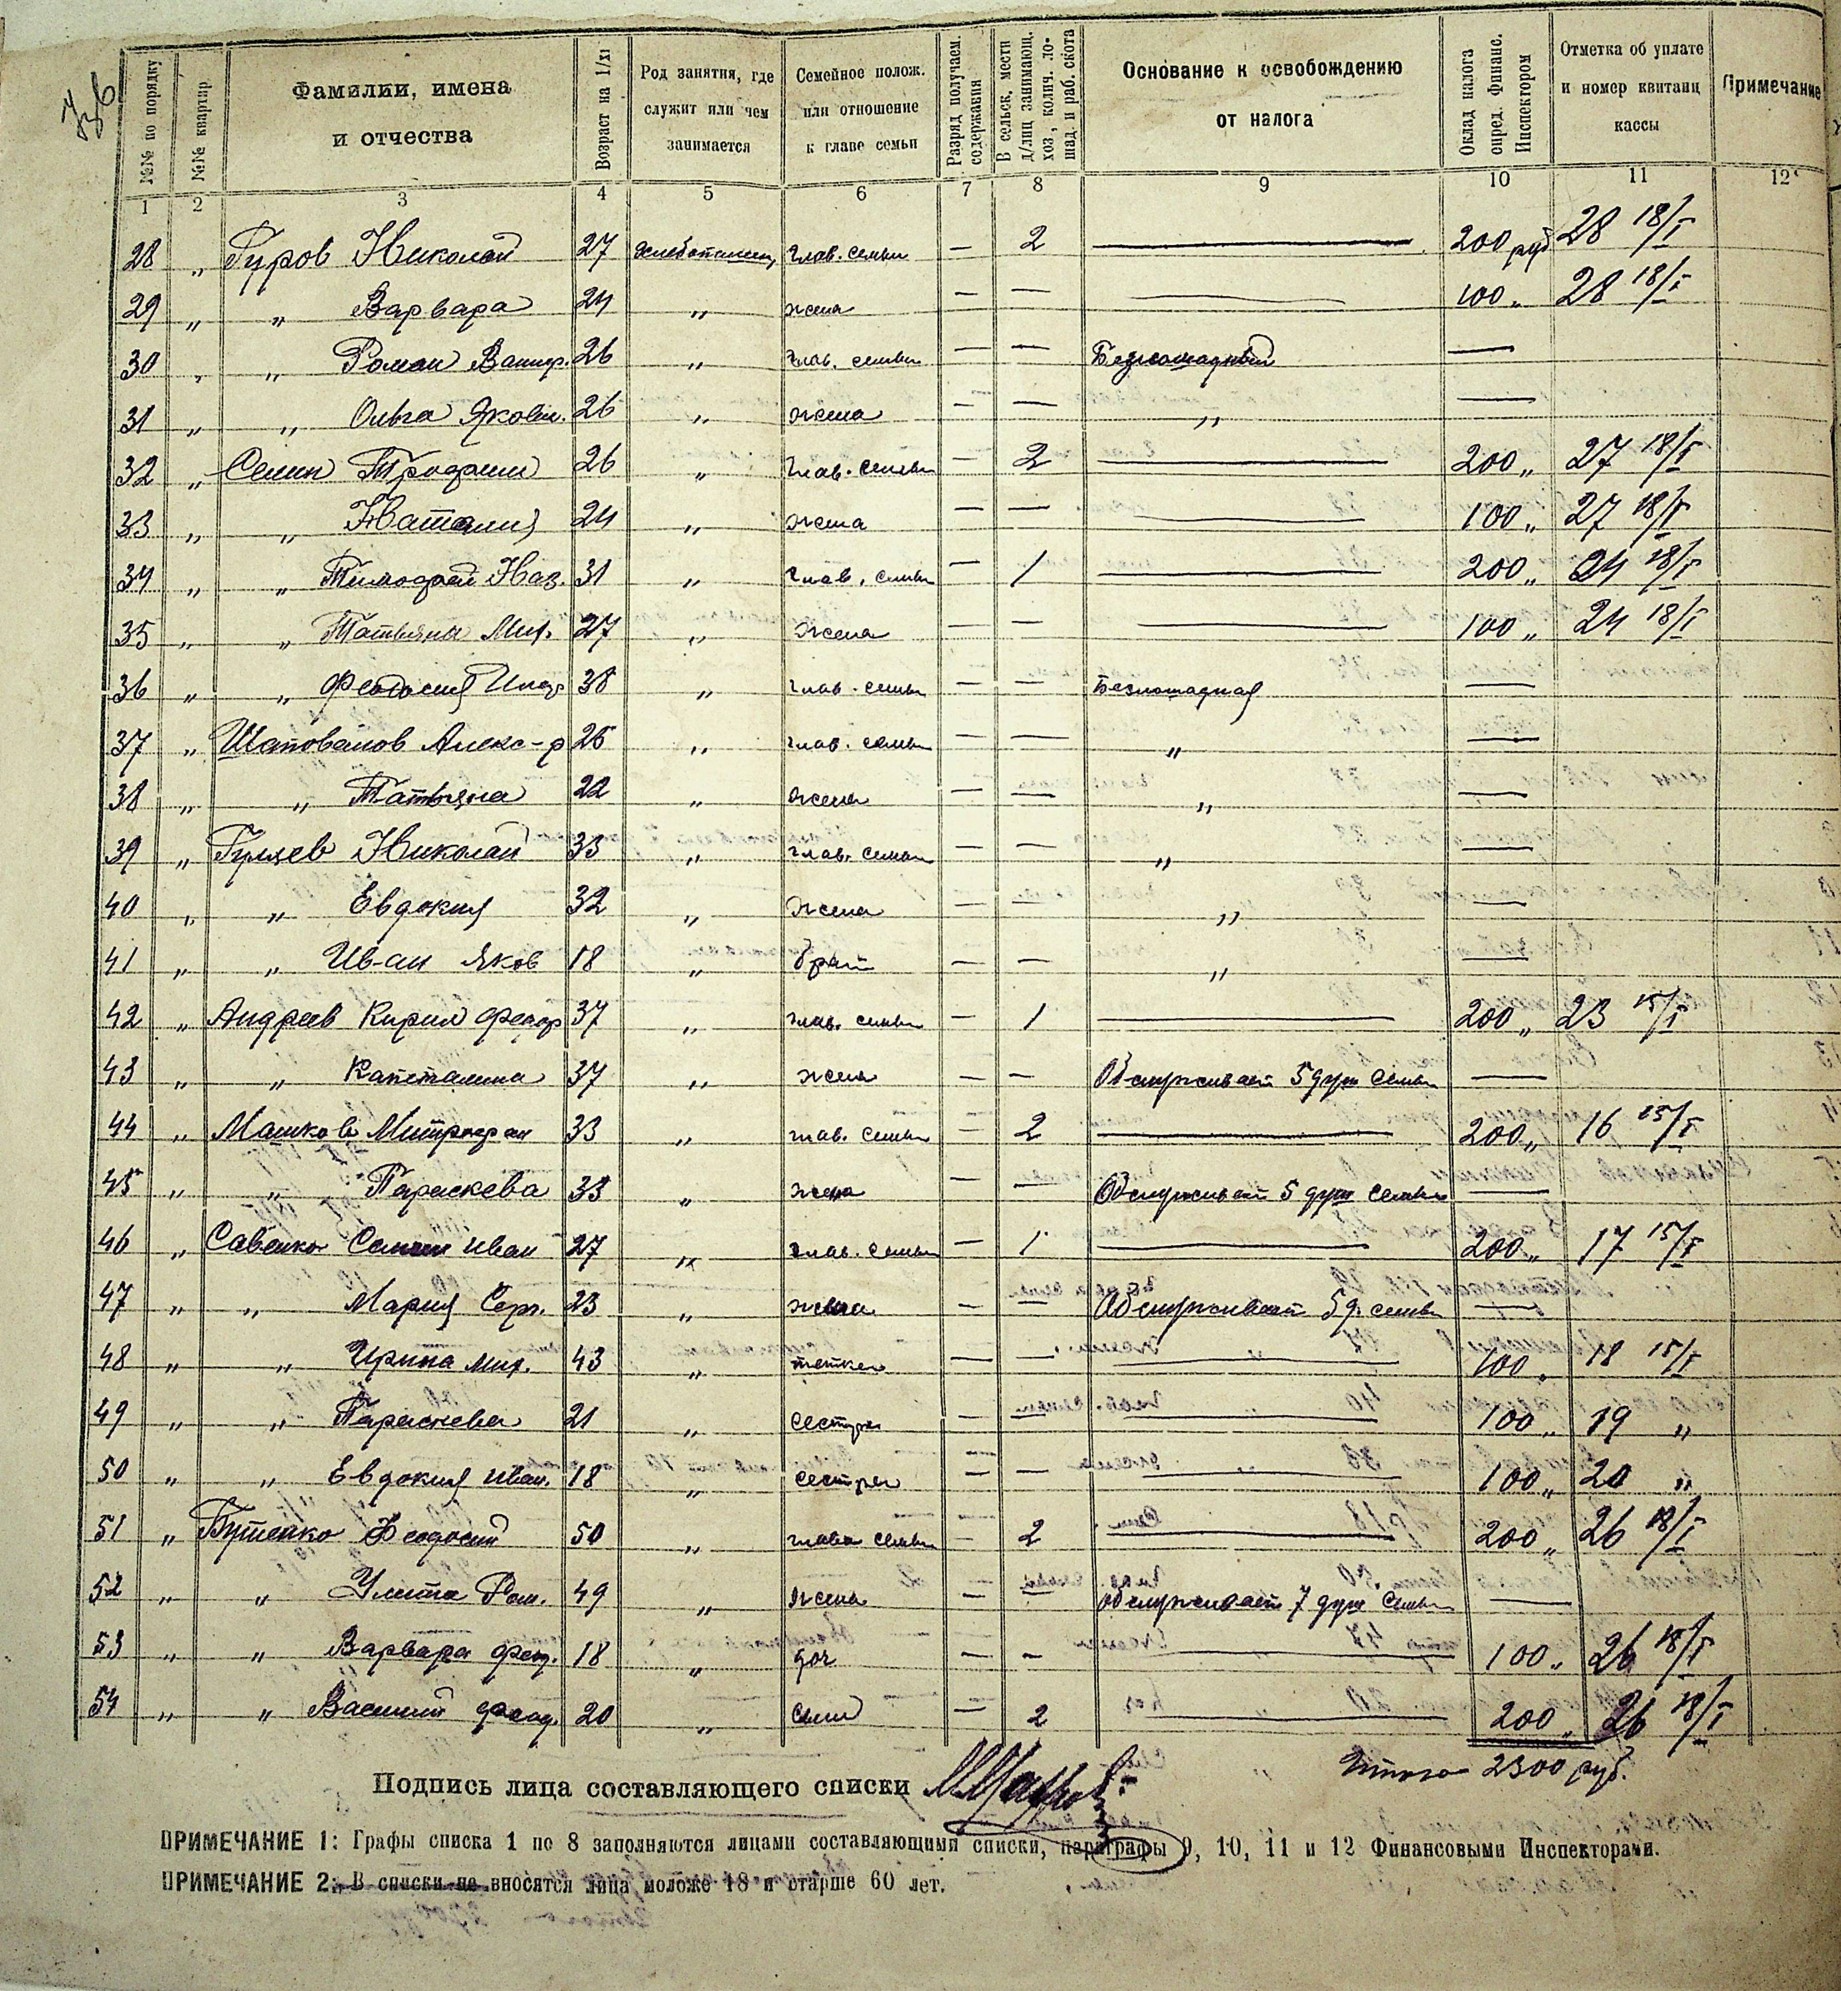 №№ по порядку
№№ квартир
Фамилии, имена
и отчества
Возраст на 1/XI
Род занятия, где
служит или чем
занимается
Семейное полож.
или отношение
к главе семьи
Разряд получаем.
содержания
В сельск. мести
д/лиц занимающ.
хоз., колич. ло-
шад. и раб. скота
Основание к освобождению
от налога
Оклад налога
опред. финанс.
Инспектором
Отметка об уплате
и номер квитанц
кассы
Примечание
1 2 3 4 5 6 7 8 9 10 11 12
28 „ Гуров Николай 27 глав. семьи — 2 — 200 руб 28 18/I
29 „ „ Варвара 24 „ жена — — — 100 „ 28 18/I
30 „ „ Роман 26 „ глав. семьи — — Безлошадный —
31 „ „ Ольга Яковл. 26 „ жена — — „ —
32 „ Семин Трофим 26 „ глав. семьи — 2 — 200 „ 27 18/I
33 „ „ Наталия 24 „ жена — — — 100 „ 27 18/I
34 „ „ Тимофей Наз. 31 „ глав. семьи — 1 — 200 „ 24 18/I
35 „ „ Татьяна Мих. 27 „ жена — — — 100 „ 24 18/I
36 „ „ Феодосия 38 „ глав. семьи — — Безлошадная —
37 „ Шаповалов Алекс-р 26 „ глав. семьи — — „ —
38 „ „ Татьяна 22 „ жена — — „ —
39 „ Гуляев Николай 33 „ глав. семьи — — „ —
40 „ „ Евдокия 32 „ жена — — „ —
41 „ „ Ив-ан Яков 18 „ брат — — „ —
42 „ Андреев Кирил Федор 37 „ глав. семьи — 1 — 200 „ 23 15/I
43 „ „ Капеталина 37 „ жена — — Обслуживает 5 душ семьи —
44 „ Машков Митрофан 33 „ глав. семьи — 2 — 200 „ 16 15/I
45 „ „ Параскева 33 „ жена — — Обслуживает 5 душ семьи —
46 „ Савенко Семен Иван 27 „ глав. семьи — 1 — 200 „ 17 15/I
47 „ „ Мария Серг. 23 „ жена — — Обслуживает 5 д. семьи —
48 „ „ Ирина Мих. 43 „ тетка — — — 100 „ 18 15/I
49 „ „ Параскева 21 „ сестра — — — 100 „ 19 „
50 „ „ Евдокия Иван. 18 „ сестра — — — 100 „ 20 „
51 „ Бутенко Феодосий 50 „ глава семьи — 2 — 200 „ 26 18/I
52 „ „ Улита Ром. 49 „ жена — — обслуживает 7 душ семьи —
53 „ „ Варвара Феод. 18 „ доч — — — 100 „ 26 18/I
54 „ „ Василий Феод. 20 „ сын — 2 — 200 „ 26 18/I
Итого 2300 руб.
Подпись лица составляющего списки
ПРИМЕЧАНИЕ 1: Графы списка 1 по 8 заполняются лицами составляющими списки, параграфы 9, 10, 11 и 12 Финансовыми Инспекторами.
ПРИМЕЧАНИЕ 2: В списки не вносятся лица моложе 18 и старше 60 лет.